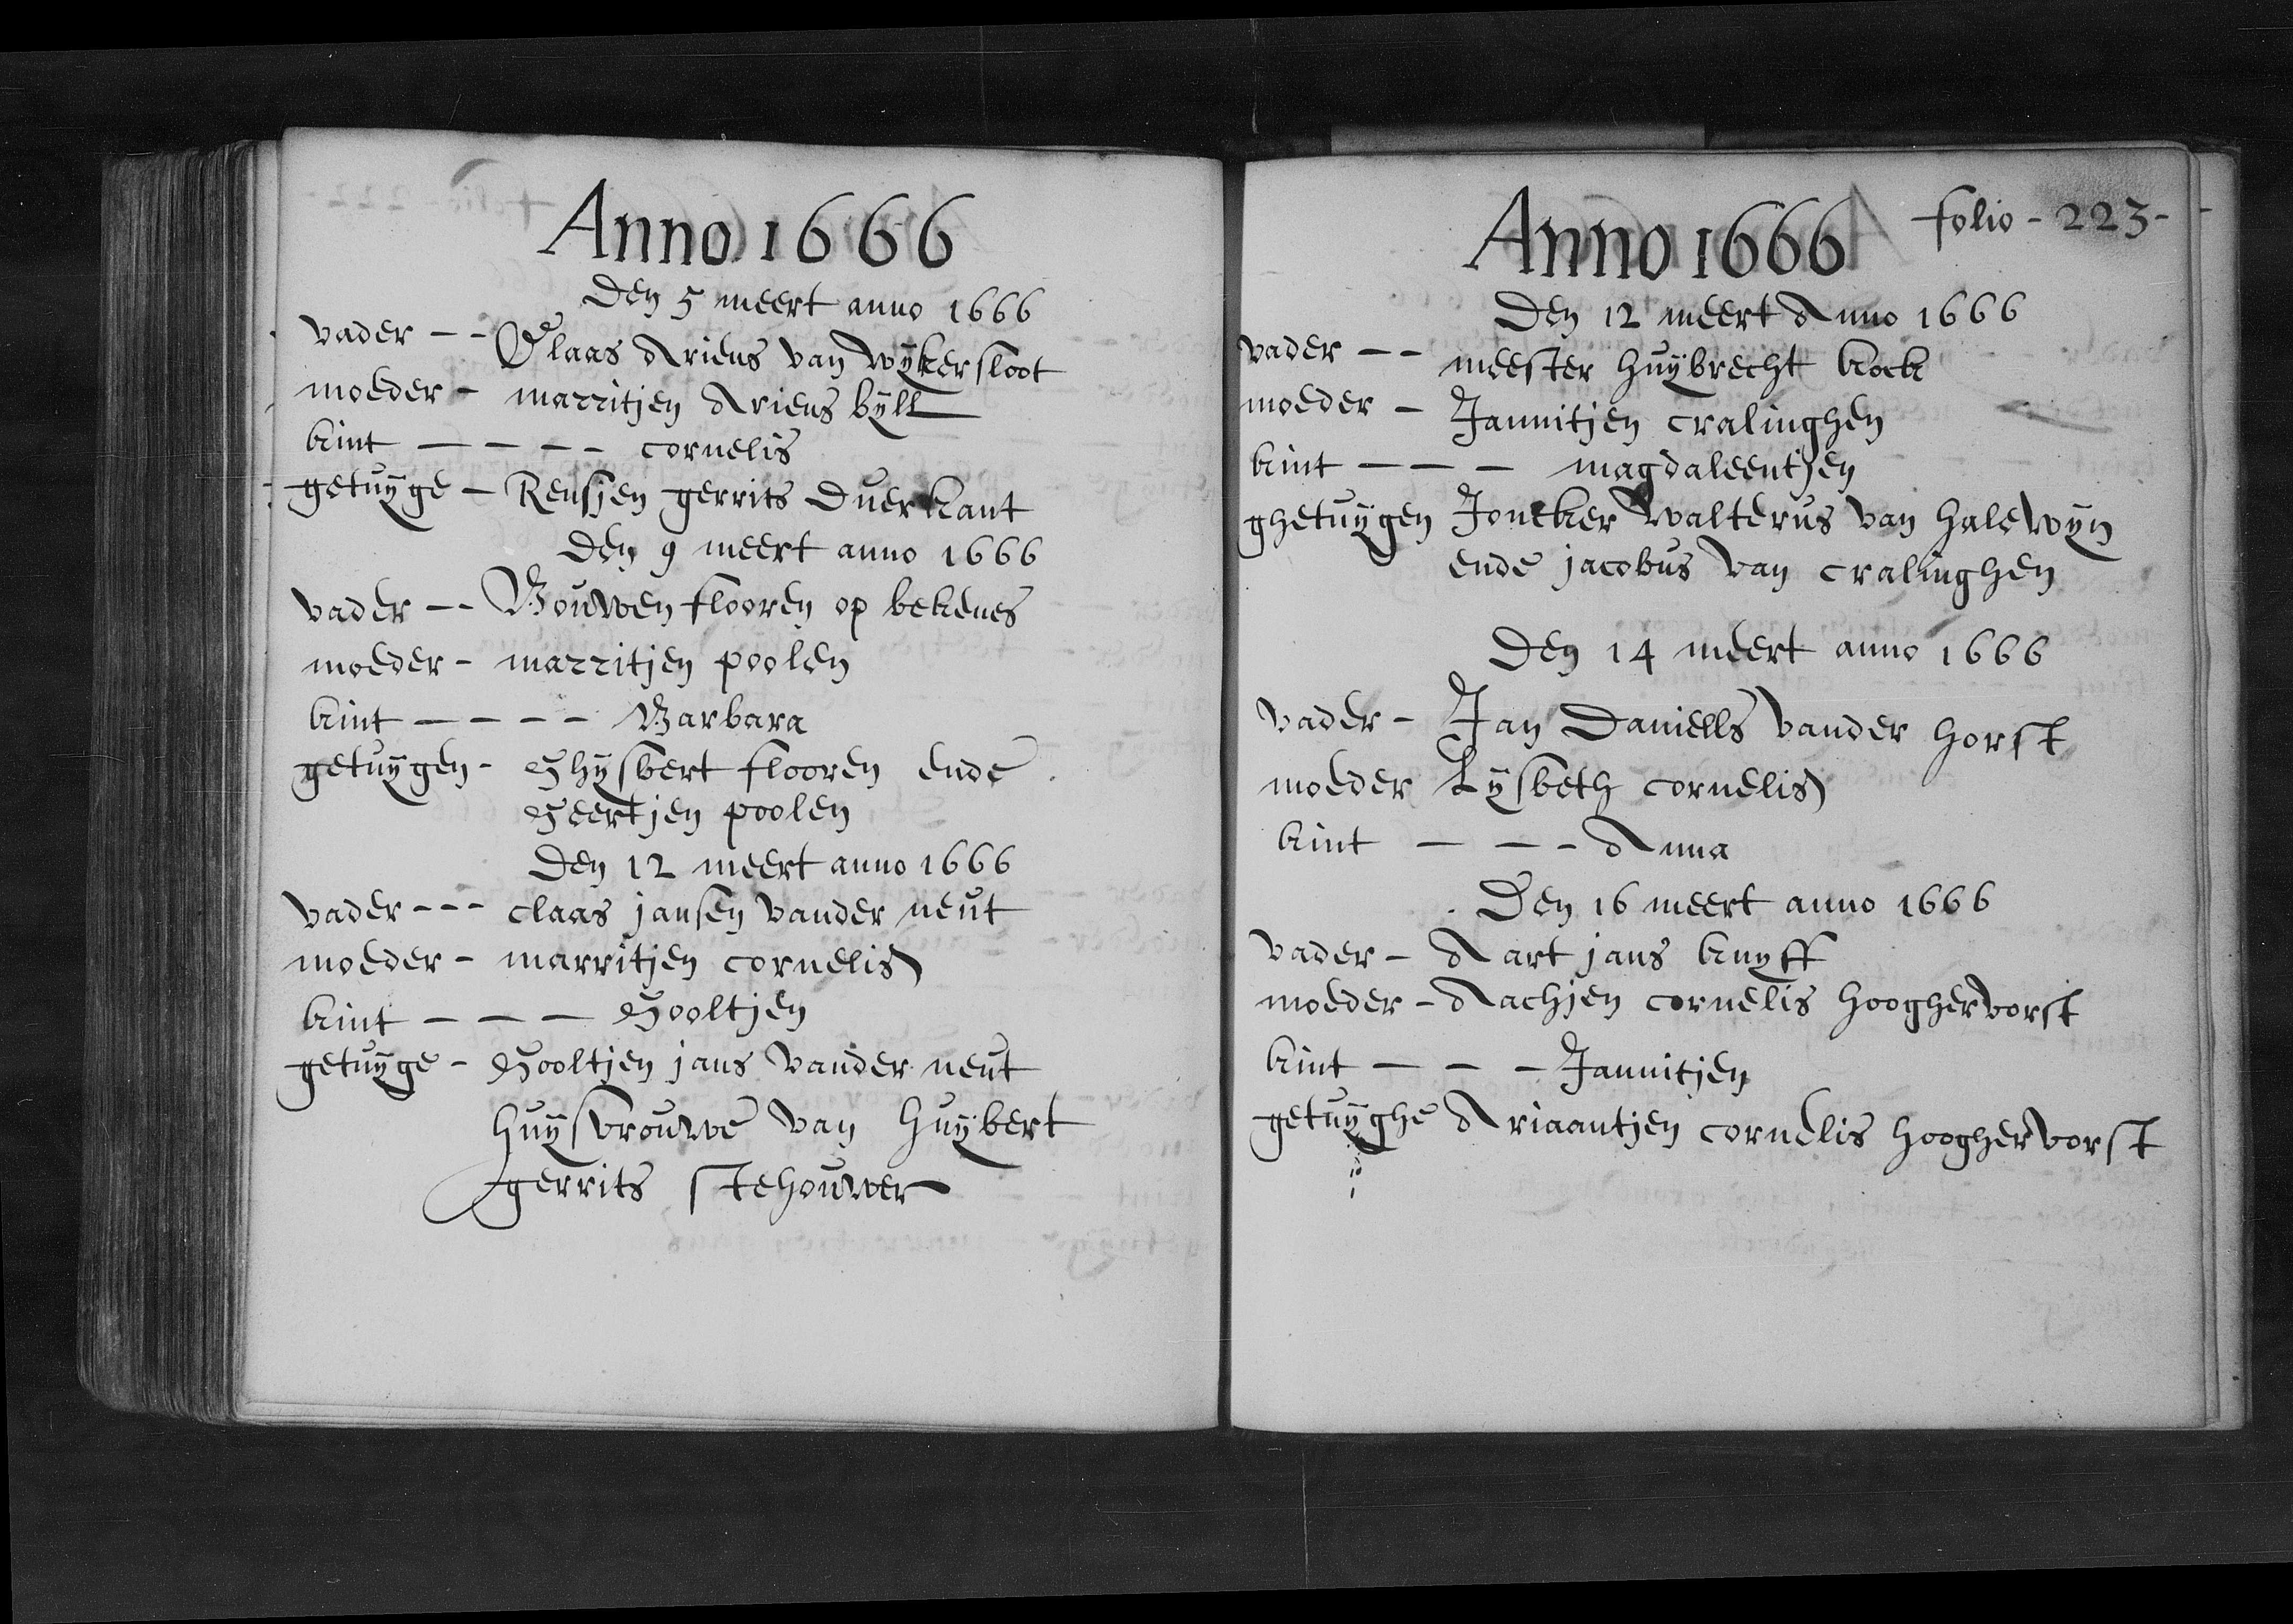 Anno 1666
Den 5 meert anno 1666
vader -- Claas Ariens van wÿkersloot
moeder - marritjen Ariens bÿll
kint - - - - cornelis
getuÿge - Rensjen gerrits Duerkant
Den 9 meert anno 1666
vader -- Bouwen flooren op bekenes
moeder - marritjen poolen
kint - - - - Barbara
getuÿgen - Ghÿsbert flooren ende
Geertjen poolen
Den 12 meert anno 1666
vader --- claas jansen vander neut
moeder - marritjen cornelis
kint - - - Gooltjen
getuÿge - Gooltjen jans vander neut
huÿsvrouwe van huÿbert
gerrits stehouwer
Anno 1666 folio - 223 -
Den 12 meert Anno 1666
vader -- meester huÿbrecht kock
moeder - Jannitjen cralinghen
kint - - - magdaleentjen
ghetuÿgen Joncker walterus van halewÿn
ende jacobus van cralinghen
Den 14 meert anno 1666
vader - Jan Daniells vander horst
moeder Lÿsbeth cornelis
kint - - - Anna
Den 16 meert anno 1666
vader - Aart jans knÿff
moeder - Aachjen cornelis hooghervorst
kint - - - Jannitjen
getuÿghe Ariaantjen cornelis hooghervorst